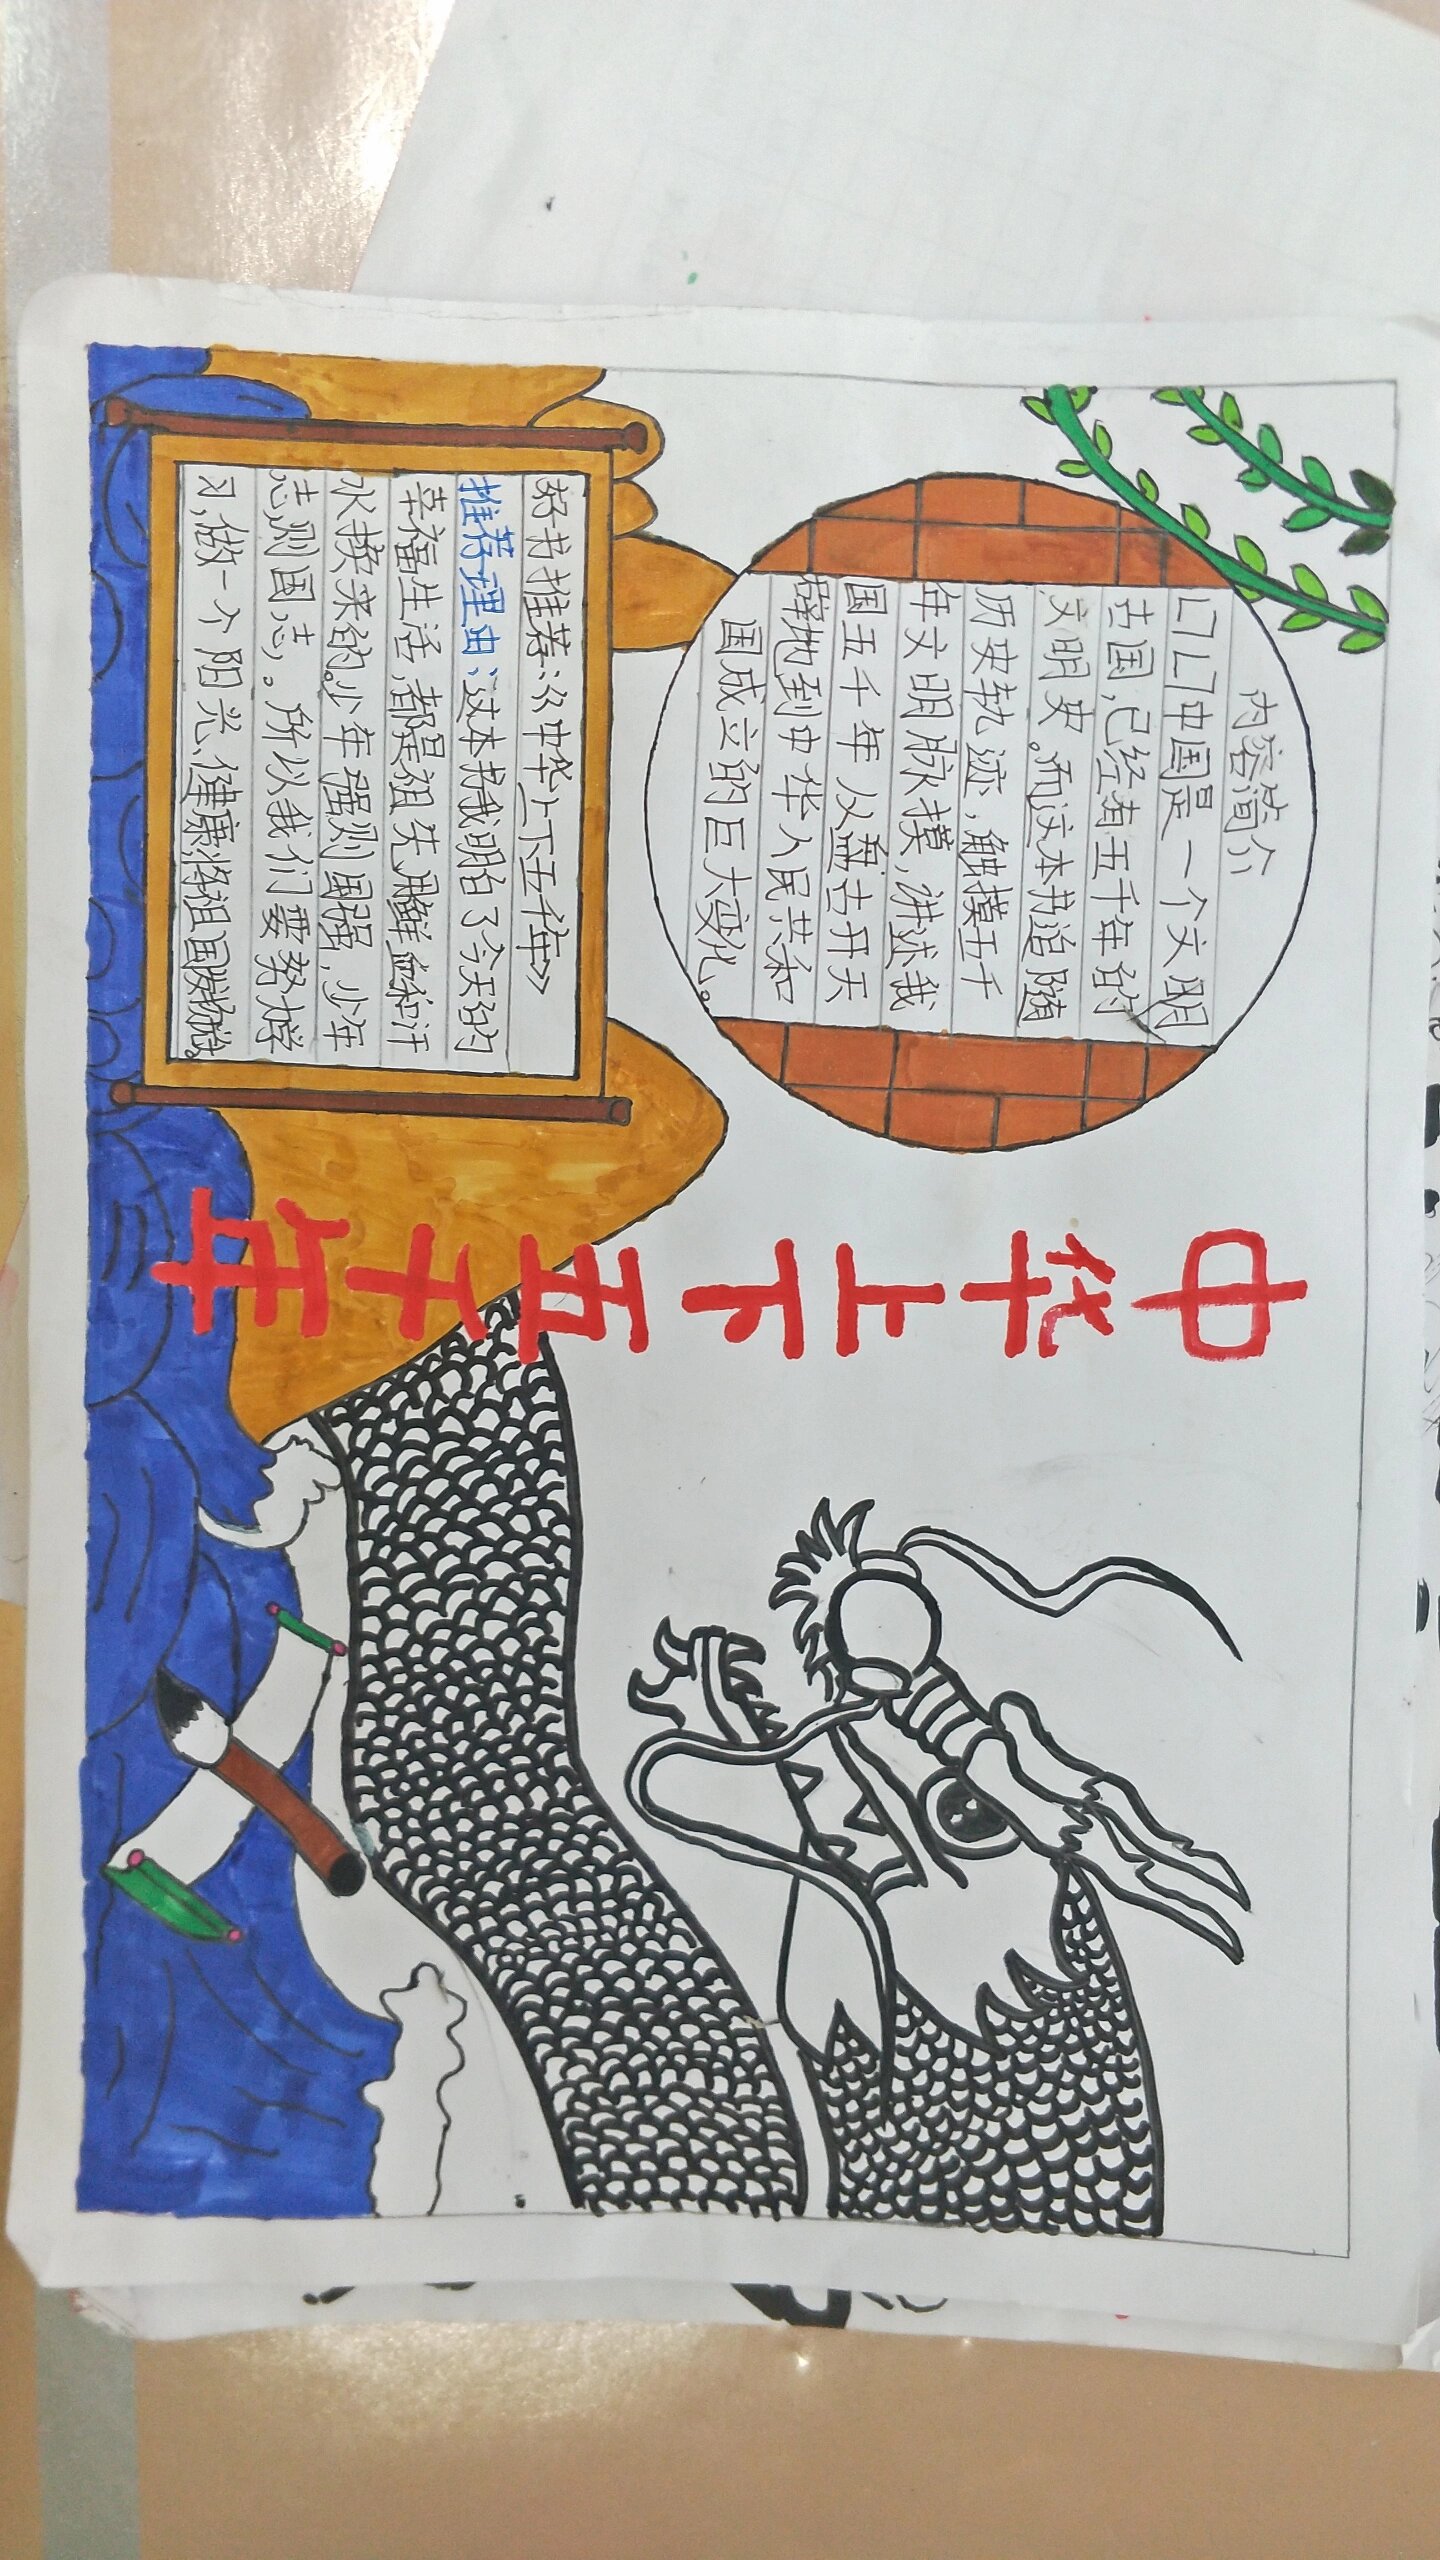 中华上下五千年
内容简介
中国是一个文明
古国,已经有五千年的
文明史。而这本书追随
历史轨迹,触摸五千
年文明脉摸,讲述我
国五千年从盘古开天
辟地到中华人民共和
国成立的巨大变化。
好书推荐:《中华上下五千年》
推荐理由:这本书我明白了今天的
幸福生活,都是祖先用鲜血和汗
水换来的。少年强则国强,少年
志,则国志。所以我们要努力学
习,做一个阳光、健康,将祖国